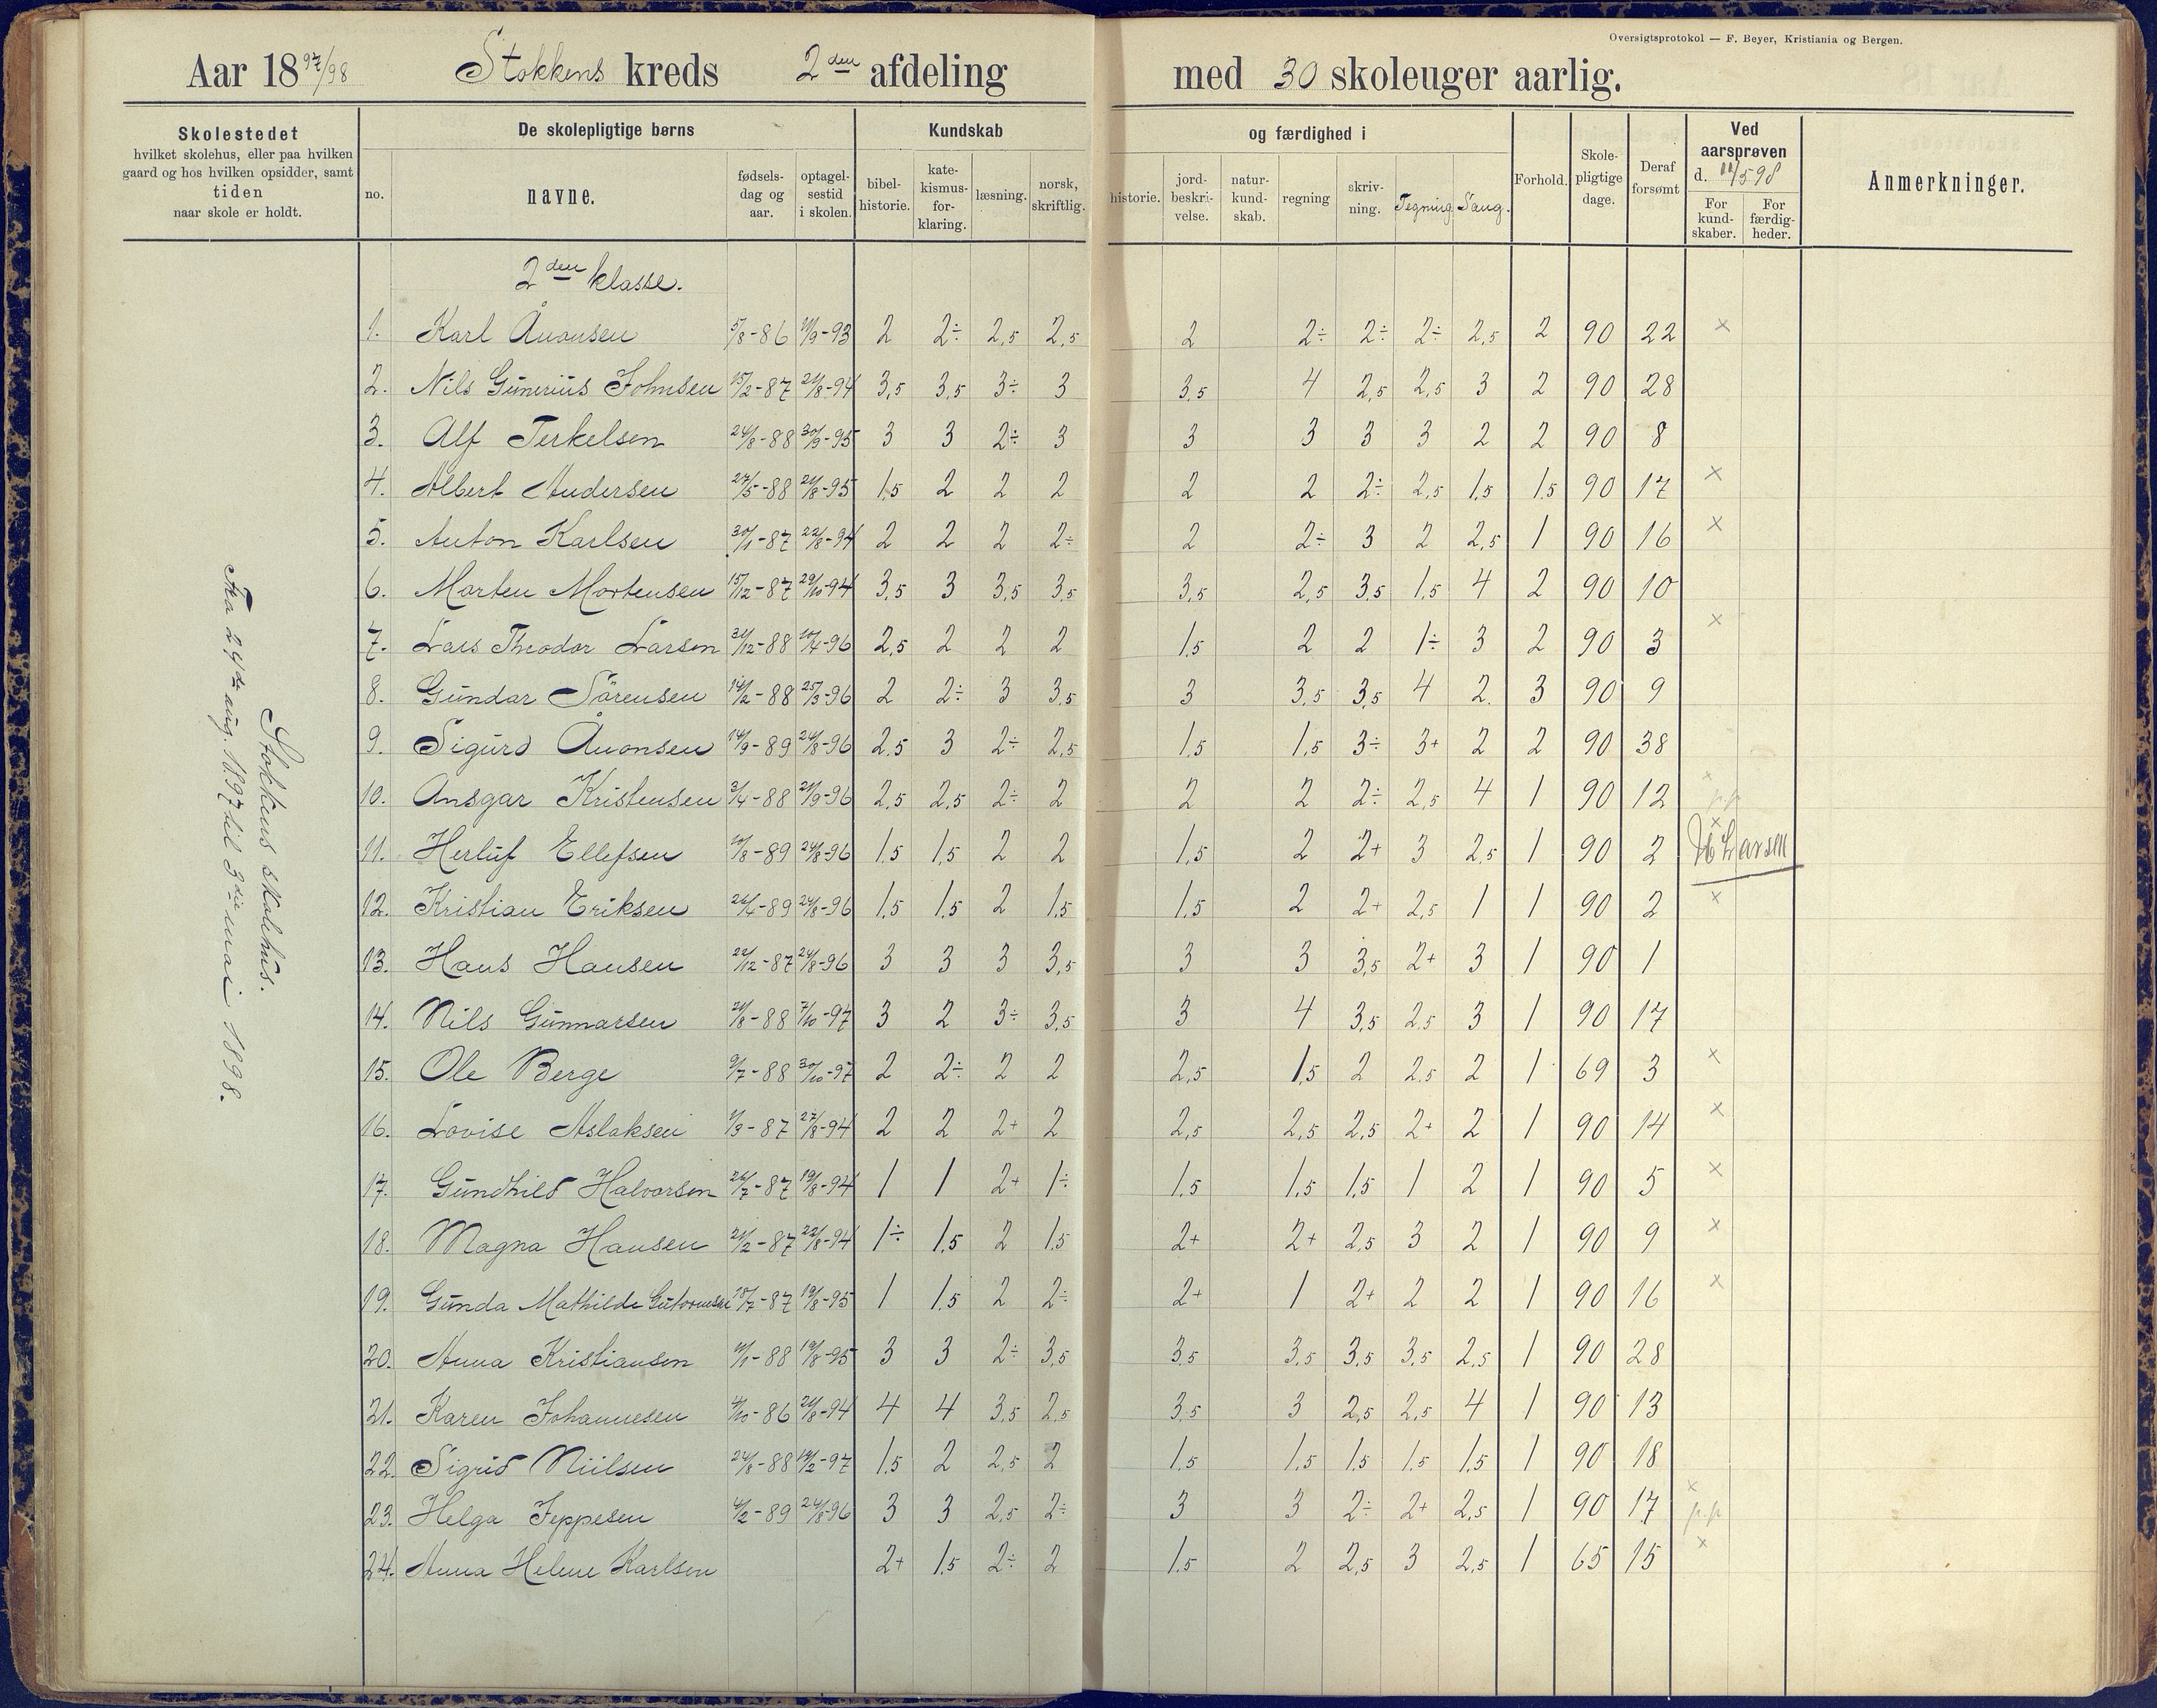 Oversigtsprotokol — F. Beyer, Kristiania og Bergen.
Aar 18 97/98 Stokkens kreds 2den afdeling med 30 skoleuger aarlig.
Skolestedet
hvilket skolehus, eller paa hvilken
gaard og hos hvilken opsidder, samt
tiden
naar skole er holdt.
De skolepligtige børns
no. navne. fødsels-dag og aar. optagel-sestid i skolen.
Kundskab og færdighed i
bibel-historie. kate-kismus-for-klaring. læsning. norsk, skriftlig. historie. jord-beskri-velse. natur-kund-skab. regning skriv-ning. Tegning Sang.
Forhold. Skole-pligtige dage. Deraf forsømt
Ved aarsprøven d. 11/5 98
For kund-skaber. For færdig-heder.
Anmerkninger.
Stokkens skolehus.
Fra 24de aug. 1897 til 3die mai 1898.
2den klasse.
1. Karl Åvonsen 5/8-86 11/9-93 2 2÷ 2,5 2,5 2 2÷ 2÷ 2÷ 2,5 2 90 22 ×
2. Nils Gunerius Johnsen 15/2-87 21/8-94 3,5 3,5 3÷ 3 3,5 4 2,5 2,5 3 2 90 28
3. Alf Terkelsen 24/8-88 30/9-95 3 3 2÷ 3 3 3 3 3 2 2 90 8
4. Albert Andersen 27/5-88 21/8-95 1,5 2 2 2 2 2 2÷ 2,5 1,5 1,5 90 17 ×
5. Anton Karlsen 30/1-87 22/8-94 2 2 2 2÷ 2 2÷ 3 2 2,5 1 90 16 ×
6. Morten Mortensen 15/12-87 29/10-94 3,5 3 3,5 3,5 3,5 2,5 3,5 1,5 4 2 90 10
7. Lars Theodor Larsen 31/12-88 10/4-96 2,5 2 2 2 1,5 2 2 1÷ 3 2 90 3 ×
8. Gundar Sörensen 14/2-88 25/3-96 2 2÷ 3 3,5 3 3,5 3,5 4 2. 3 90 9
9. Sigurd Åvonsen 14/9-89 24/8-96 2,5 3 2÷ 2,5 1,5 1,5 3÷ 3+ 2 2 90 38
10. Ansgar Kristensen 3/4-88 21/9-96 2,5 2,5 2÷ 2 2 2 2÷ 2,5 4 1 90 12 × p.p
11. Herluf Ellefsen 19/8-89 24/8-96 1,5 1,5 2 2 1,5 2 2+ 3 2,5 1 90 2 × Larsen
12. Kristian Eriksen 26/4-89 24/8-96 1,5 1,5 2 1,5 1,5 2 2+ 2,5 1 1 90 2 ×
13. Hans Hansen 22/12-87 24/8-96 3 3 3 3,5 3 3 3,5 2+ 3 1 90 1
14. Nils Gunnarsen 21/8-88 7/10-97 3 2 3÷ 3,5 3 4 3,5 2,5 3 1 90 17
15. Ole Berge 9/7-88 30/10-97 2 2÷ 2 2 2,5 1,5 2 2,5 2 1 69 3 ×
16. Lovise Aslaksen 1/3-87 27/8-94 2 2 2+ 2 2,5 2,5 2,5 2+ 2 1 90 14 ×
17. Gundhild Halvorsen 26/7-87 19/8-94 1 1 2+ 1÷ 1,5 1,5 1,5 1 2 1 90 5 ×
18. Magna Hansen 21/2-87 22/8-94 1÷ 1,5 2 1,5 2+ 2+ 2,5 3 2 1 90 9 ×
19. Gunda Mathilde Gutormsen 18/7-87 19/8-95 1 1,5 2 2÷ 2+ 1 2+ 2 2 1 90 16 ×
20. Anna Kristiansen 11/1-88 19/8-95 3 3 2÷ 3,5 3,5 3,5 3,5 3,5 2,5 1 90 28
21. Karen Johannesen 4/10-86 21/8-94 4 4 3,5 2,5 3,5 3 2,5 2,5 4 1 90 13
22. Sigrid Niilsen 24/8-88 19/2-97 1,5 2 2,5 2 1,5 1,5 1,5 1,5 1,5 1 90 18
23. Helga Jeppesen 4/2-89 24/8-96 3 3 2,5 2÷ 3 3 2÷ 2+ 2,5 1 90 17 × p.p
24. Anna Helene Karlsen 2+ 1,5 2÷ 2 1,5 2 2,5 3 2,5 1 65 15 ×